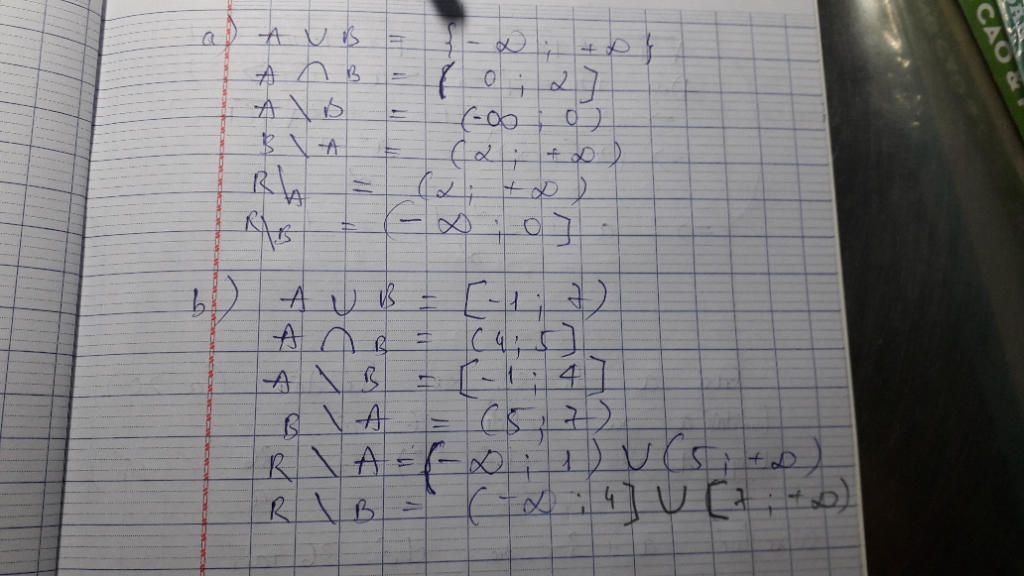 a) A ∪ B = {-∞ ; +∞}
A ∩ B = [0 ; 2]
A \ B = (-∞ ; 0)
B \ A = (2 ; +∞)
R\A = (2 ; +∞)
R\B = (-∞ ; 0]
b) A ∪ B = [-1 ; 7)
A ∩ B = (4 ; 5]
A \ B = [-1 ; 4]
B \ A = (5 ; 7)
R \ A = (-∞ ; 1) ∪ (5 ; +∞)
R \ B = (-∞ ; 4] ∪ [7 ; +∞)
CAO &